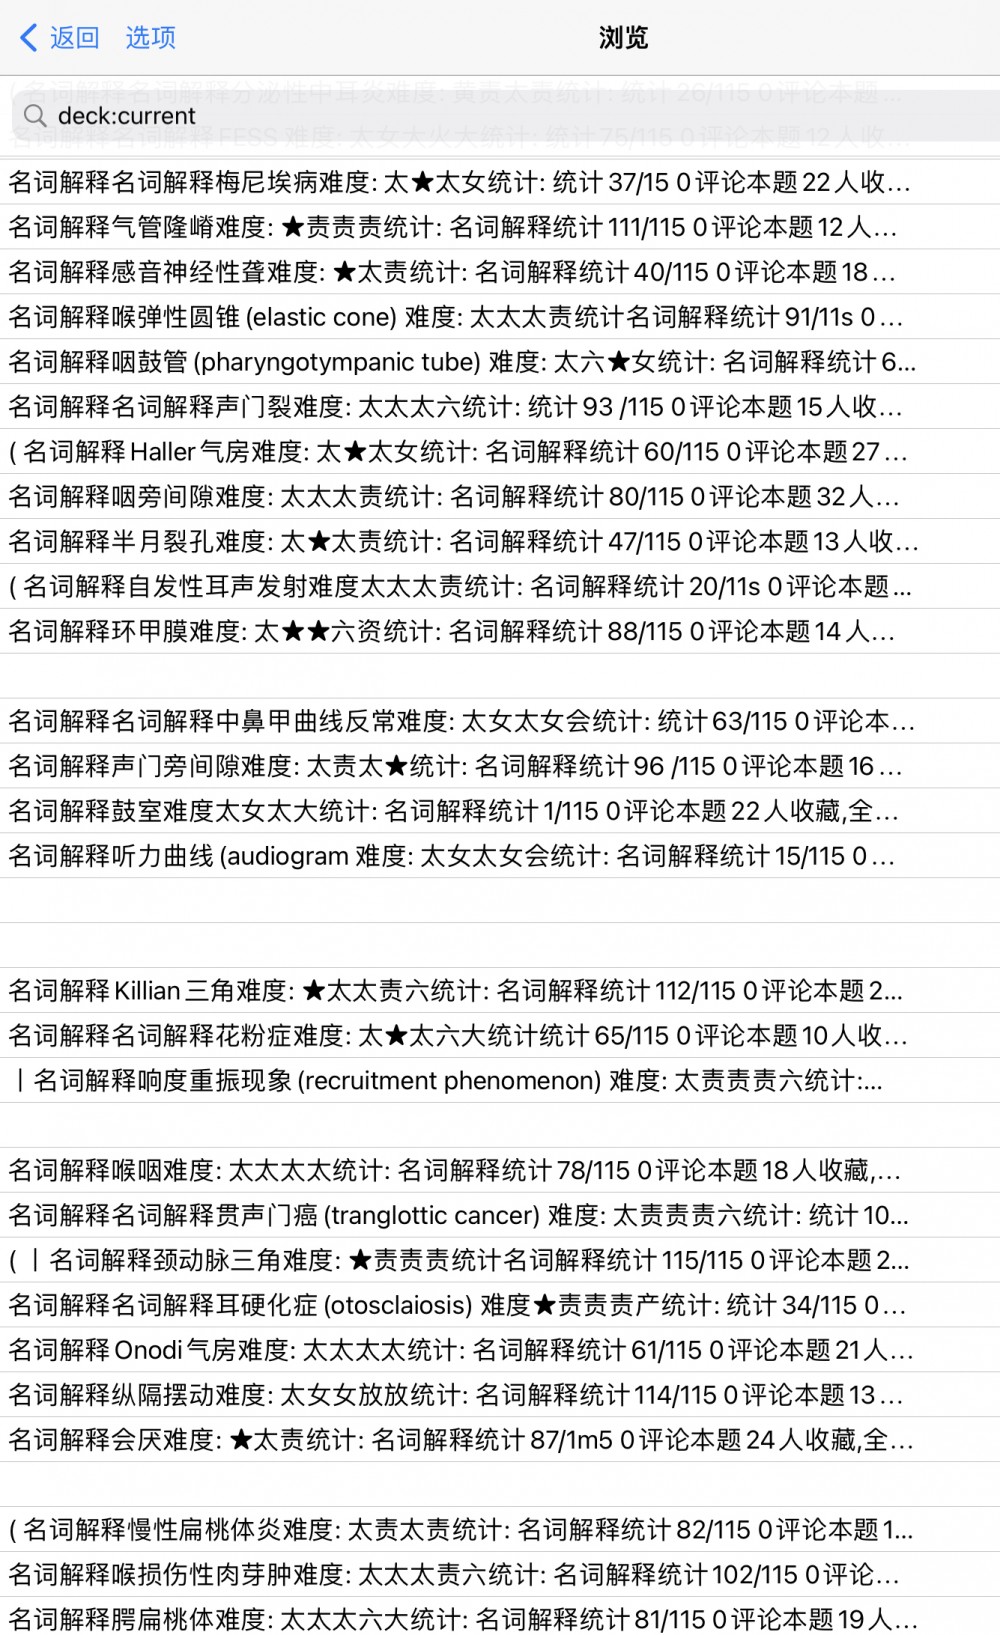 返回 选项 浏览
(名词解释名词解释分泌性中耳炎难度: 黄责太责统计: 统计26/115 0评论本题...
deck:current
名词解释名词解释FESS 难度: 太女大火大统计: 统计75/115 0评论本题12人收...
名词解释名词解释梅尼埃病难度: 太★太女统计: 统计37/15 0评论本题22人收...
名词解释气管隆嵴难度: ★责责责统计: 名词解释统计111/115 0评论本题12人...
名词解释感音神经性聋难度: ★太责统计: 名词解释统计40/115 0评论本题18...
名词解释喉弹性圆锥(elastic cone) 难度: 太太太责统计名词解释统计91/11s 0...
名词解释咽鼓管(pharyngotympanic tube) 难度: 太六★女统计: 名词解释统计6...
名词解释名词解释声门裂难度: 太太太六统计: 统计93 /115 0评论本题15人收...
(名词解释Haller气房难度: 太★太女统计: 名词解释统计60/115 0评论本题27...
名词解释咽旁间隙难度: 太太太责统计: 名词解释统计80/115 0评论本题32人...
名词解释半月裂孔难度: 太★太责统计: 名词解释统计47/115 0评论本题13人收...
(名词解释自发性耳声发射难度太太太责统计: 名词解释统计20/11s 0评论本题...
名词解释环甲膜难度: 太★★六资统计: 名词解释统计88/115 0评论本题14人...
名词解释名词解释中鼻甲曲线反常难度: 太女太女会统计: 统计63/115 0评论本...
名词解释声门旁间隙难度: 太责太★统计: 名词解释统计96 /115 0评论本题16...
名词解释鼓室难度太女太大统计: 名词解释统计1/115 0评论本题22人收藏,全...
名词解释听力曲线(audiogram 难度: 太女太女会统计: 名词解释统计15/115 0...
名词解释Killian三角难度: ★太太责六统计: 名词解释统计112/115 0评论本题2...
名词解释名词解释花粉症难度: 太★太六大统计统计65/115 0评论本题10人收...
丨名词解释响度重振现象(recruitment phenomenon) 难度: 太责责责六统计:...
名词解释喉咽难度: 太太太太统计: 名词解释统计78/115 0评论本题18人收藏,...
名词解释名词解释贯声门癌(tranglottic cancer) 难度: 太责责责六统计: 统计10...
(丨名词解释颈动脉三角难度: ★责责责统计名词解释统计115/115 0评论本题2...
名词解释名词解释耳硬化症(otosclaiosis) 难度★责责责产统计: 统计34/115 0...
名词解释Onodi气房难度: 太太太太统计: 名词解释统计61/115 0评论本题21人...
名词解释纵隔摆动难度: 太女女放放统计: 名词解释统计114/115 0评论本题13...
名词解释会厌难度: ★太责统计: 名词解释统计87/1m5 0评论本题24人收藏,全...
(名词解释慢性扁桃体炎难度: 太责太责统计: 名词解释统计82/115 0评论本题1...
名词解释喉损伤性肉芽肿难度: 太太太责六统计: 名词解释统计102/115 0评论...
名词解释腭扁桃体难度: 太太太六大统计: 名词解释统计81/115 0评论本题19人...